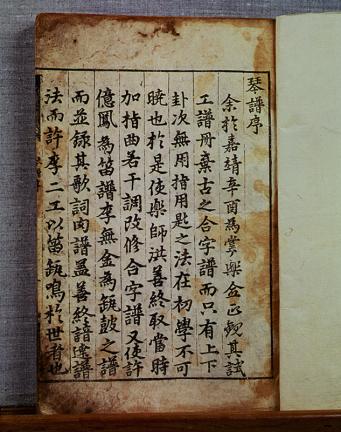 琴譜序
余於嘉靖辛酉為掌樂僉正覩其試
工譜冊棄古之合字譜而只有上下
卦次無用指用匙之法在初學不可
曉也於是使樂師洪善終取當時
加指曲若干調改修合字譜又使許
億鳳為笛譜李無金為缻鼓之譜
而並錄其歌詞肉譜盖善終諳達譜
法而許李二工以笛缻鳴於世者也